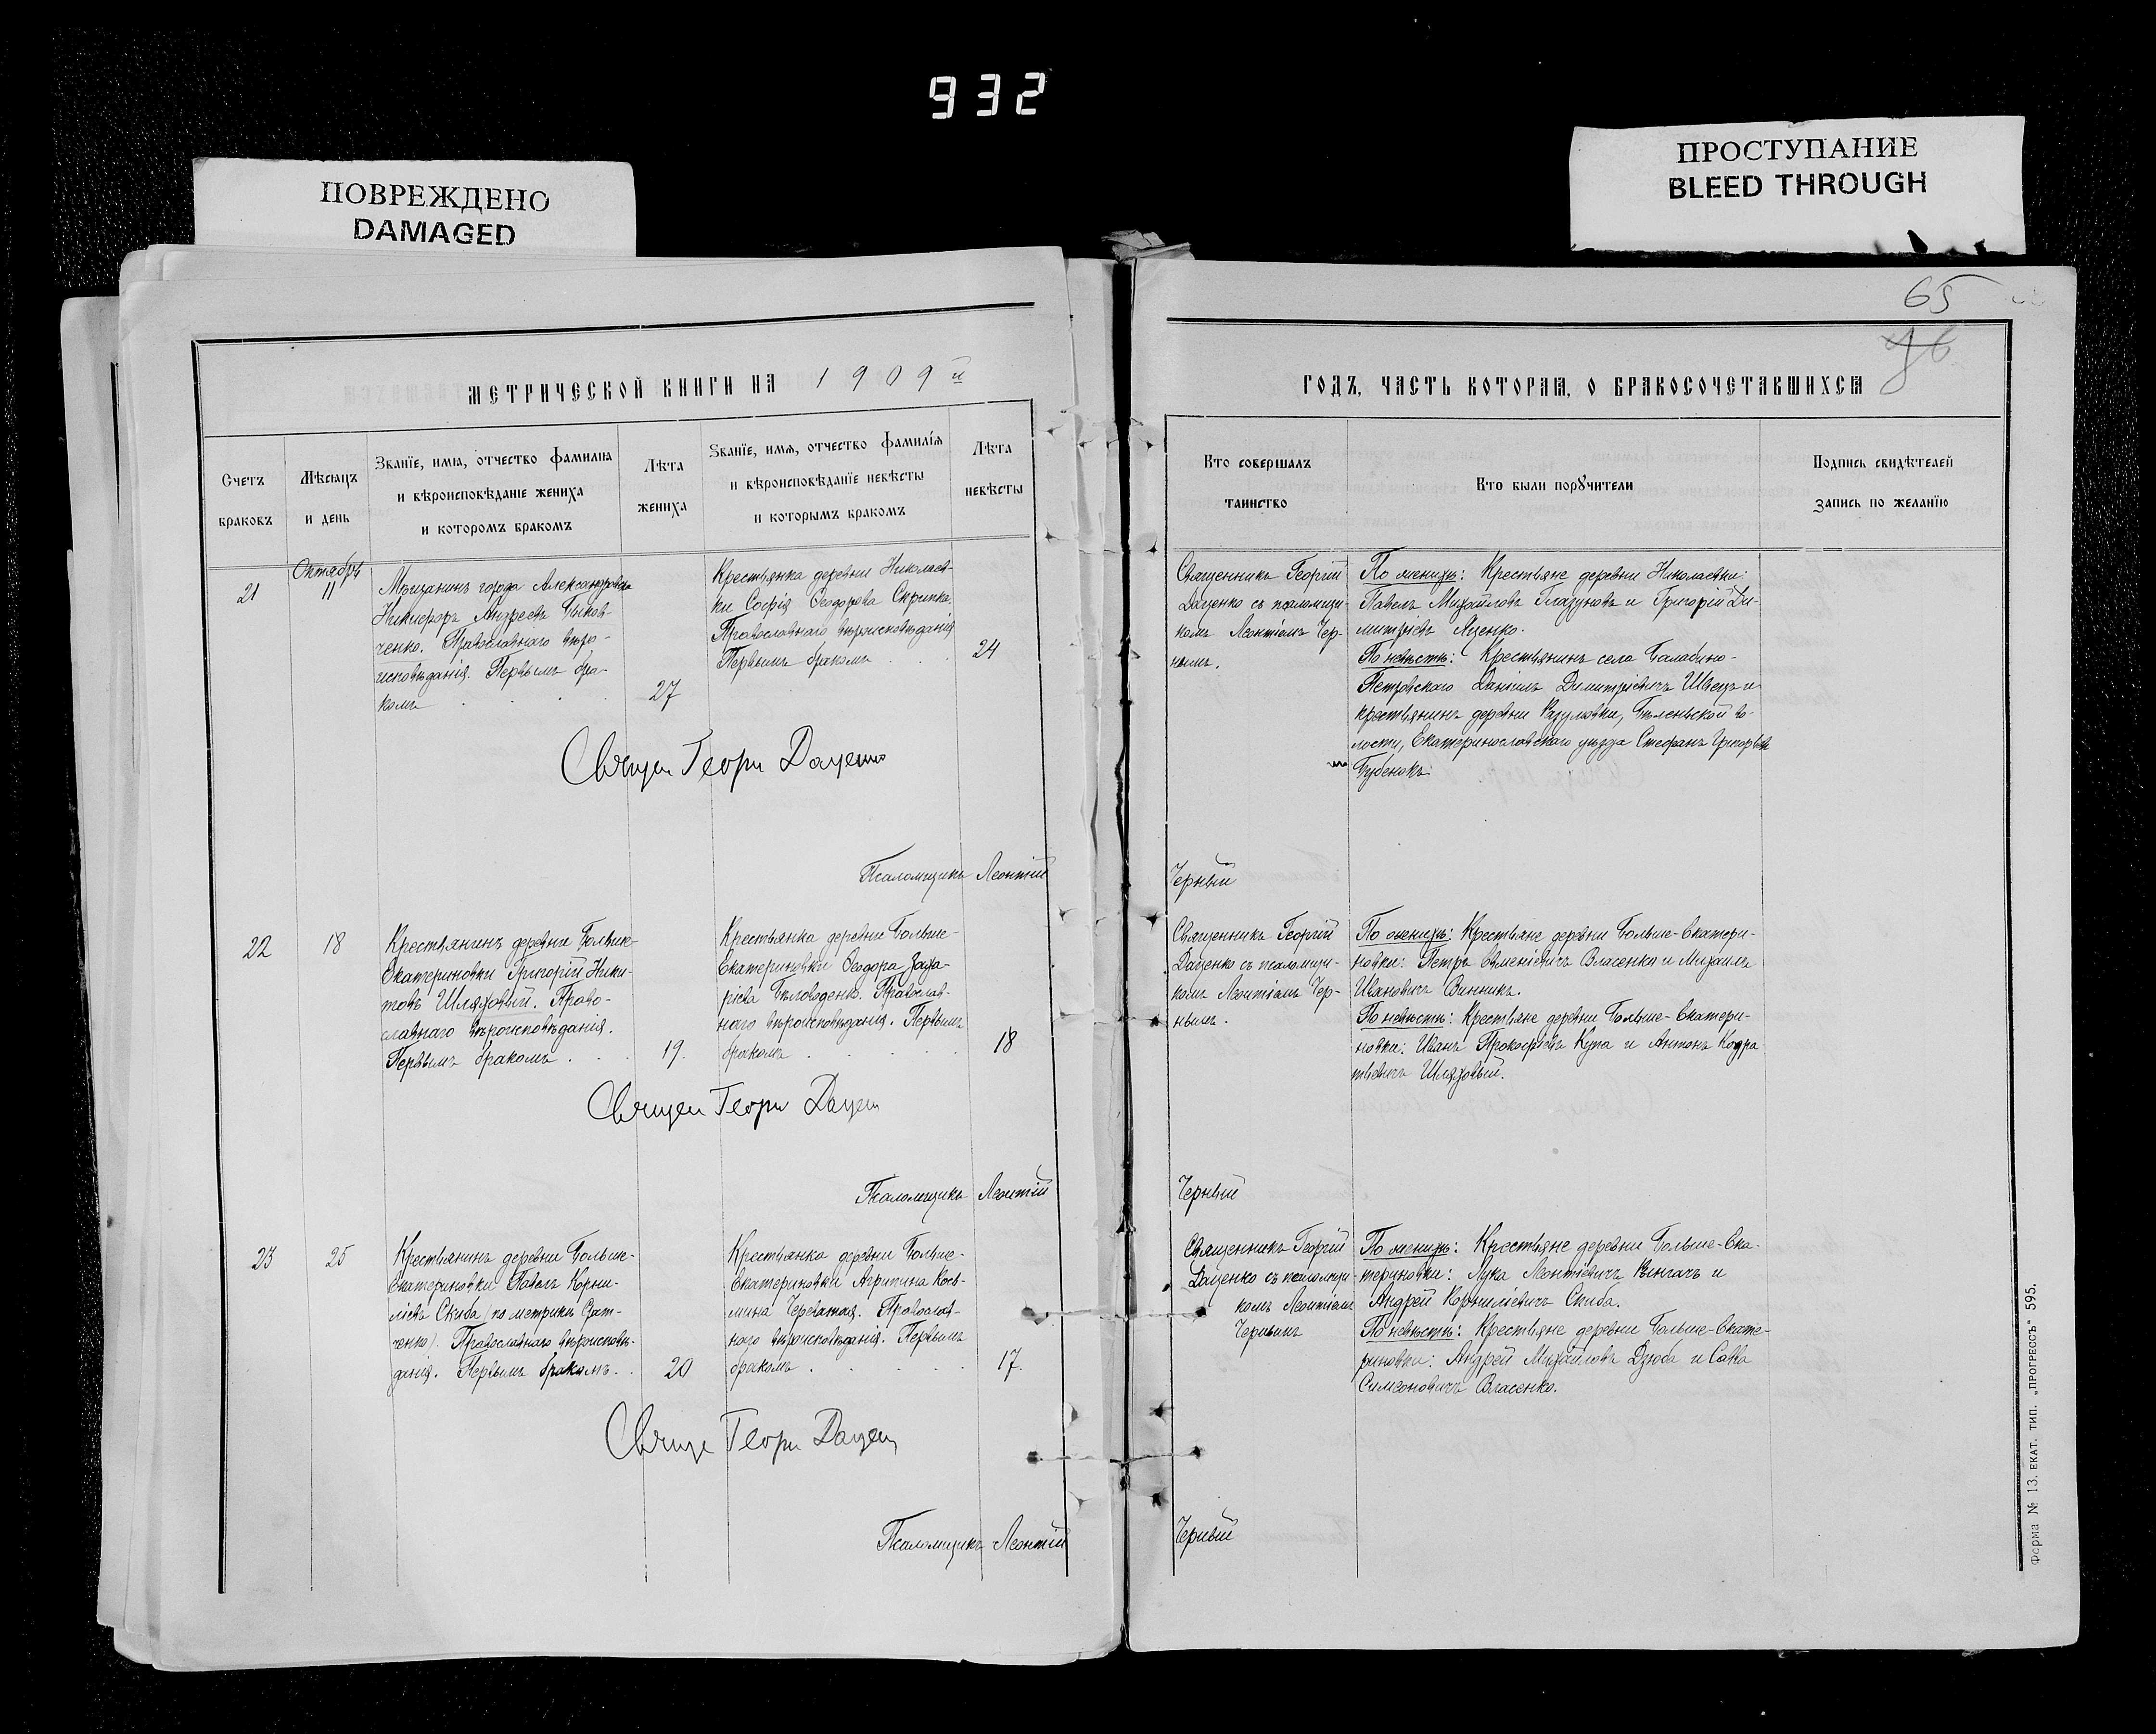 932
ПОВРЕЖДЕНО
DAMAGED
ПРОСТУПАНИЕ
BLEED THROUGH
65
МЕТРИЧЕСКОЙ КНИГИ НА 1909й
Счетъ
браковъ
Мѣсяцъ
и день
Званїе, имя, отчество фамилїя
и вѣроисповѣданїе жениха
и которомъ бракомъ
Лѣта
жениха
Званїе, имя, отчество фамилїя
и вѣроисповѣданїе невѣсты
и которымъ бракомъ
Лѣта
невѣсты
21
Октября
11
Мѣщанинъ города Александровска
Никифоръ Андреевъ
ченко. Православнаго вѣро-
исповѣданія. Первымъ бра-
комъ
27
Крестьянка деревни Николаев-
ки Софія Ѳеодорова Скрипка.
Православнаго вѣроисповѣданія
Первымъ бракомъ
24
Священ Георги Даценко
Псаломщикъ Леонтій
22
18
Крестьянинъ деревни Больше-
Екатериновки Григорій Ники-
товъ Шляховый. Право-
славнаго вѣроисповѣданія.
Первымъ бракомъ
19.
Крестьянка деревни Больше-
Екатериновки Ѳеодора Заха-
ріева Бѣловоденко. Православ-
наго вѣроисповѣданія. Первымъ
бракомъ
18
Священ Георги Дацен
Псаломщикъ Леонтій
23
25
Крестьянинъ деревни Больше-
Екатериновки Павелъ Корни-
ліевъ Скиба (по метрикѣ
ченко). Православнаго вѣроисповѣ-
данія. Первымъ бракомъ.
20
Крестьянка деревни Больше-
Екатериновки Агрипина Кось-
мина Православ-
наго вѣроисповѣданія. Первымъ
бракомъ
17
Свяще Георги Дацен
Псаломщикъ Леонтій
ГОДЪ, ЧАСТЬ КОТОРАЯ, О БРАКОСОЧЕТАВШИХСЯ
Кто совершалъ
таинство
Кто были поручители
Подпись свидѣтелей
запись по желанїю
Священникъ Георгій
Даценко съ псаломщи-
комъ Леонтіемъ Чер-
нымъ.
По женихѣ: Крестьяне деревни Николаевки:
Павелъ Михайловъ Глазуновъ и Григорій Ди-
митріевъ Яценко.
По невѣстѣ: Крестьянинъ села Балабино-
Петровскаго Даніилъ Димитріевичъ Швецъ и
крестьянинъ деревни Разумовки, Бѣленьской во-
лости, Екатеринославскаго уѣзда Стефанъ Григорьевъ
Бубенокъ.
Черный
Священникъ Георгій
Даценко съ псаломщи-
комъ Леонтіемъ Чер-
нымъ.
По женихѣ: Крестьяне деревни Больше-Екатери-
новки: Петръ Власенко и Михаилъ
Ивановичъ Винникъ.
По невѣстѣ: Крестьяне деревни Больше-Екатери-
новки: Иванъ Прокофіевъ Купа и Антонъ Кодра-
тьевичъ Шляховый.
Черный
Священникъ Георгій
Даценко съ псаломщи-
комъ Леонтіемъ
Чернымъ
По женихѣ: Крестьяне деревни Больше-Ека-
териновки: Лука Леонтіевичъ и
Андрей Корниліевичъ Скиба.
По невѣстѣ: Крестьяне деревни Больше-Екате-
риновки: Андрей Михайловъ Дзюба и Савва
Симеоновичъ Власенко.
Черный
Форма № 13. ЕКАТ. ТИП. „ПРОГРЕССЪ“ 595.